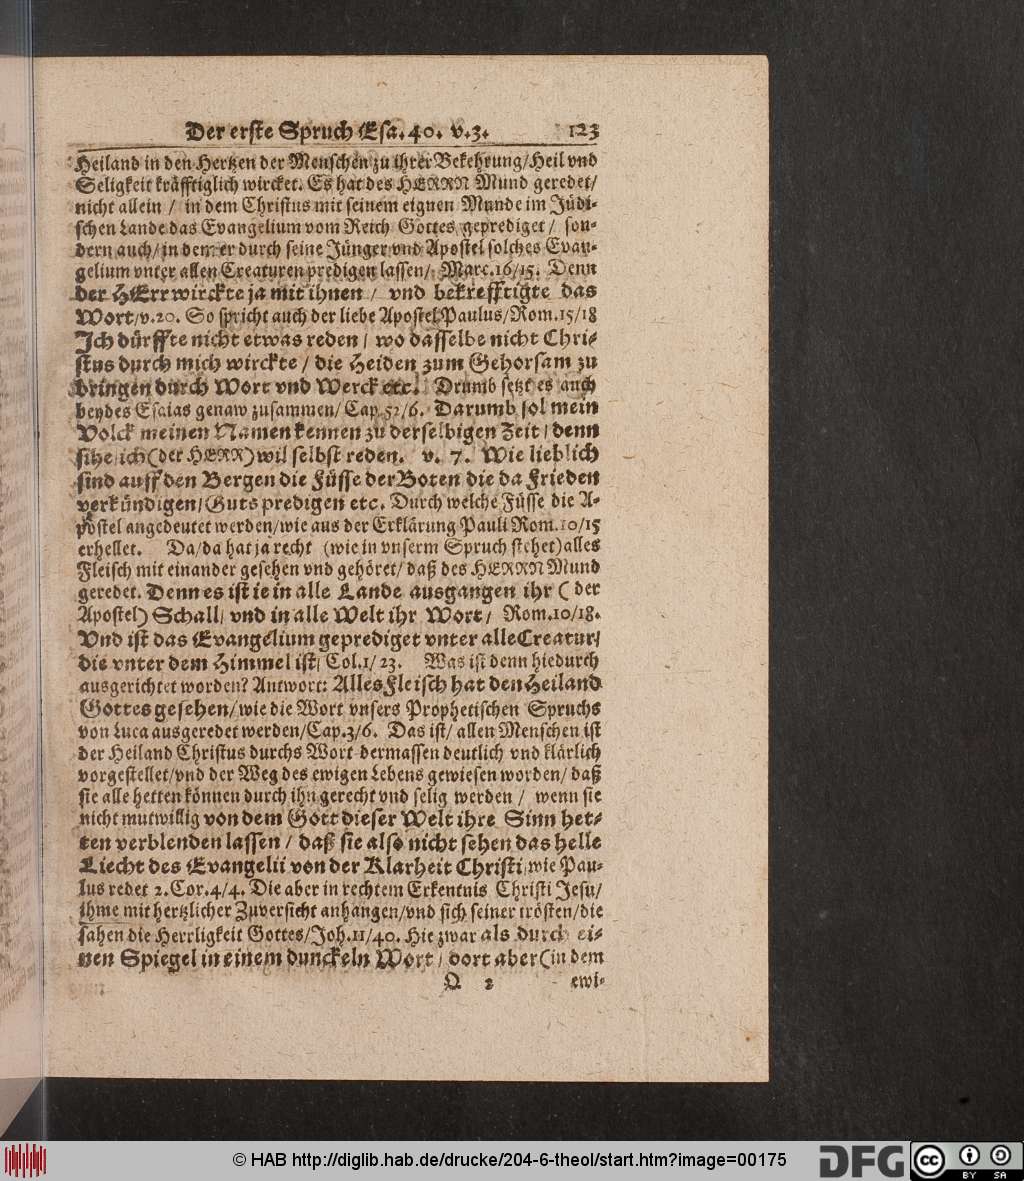 Der erste Spruch Esa. 40. v. 3. 123
Heiland in den Hertzen der Menschen zu ihrer Bekehrung/ Heil vnd
Seligkeit kräfftiglich wircket. Es hat des HERRN Mund geredet/
nicht allein / in dem Christus mit seinem eignen Munde im Jüdi-
schen Lande das Evangelium vom Reich Gottes geprediget / son-
dern auch/ in dem er durch seine Jünger vnd Apostel solches Evan-
gelium vnter allen Creaturen predigen lassen/ Marc. 16/15. Denn
der HErr wirckte ja mit ihnen / vnd bekrefftigte das
Wort/ v. 20. So spricht auch der liebe Apostel Paulus/ Rom. 15/18
Ich dürffte nicht etwas reden / wo dasselbe nicht Chri-
stus durch mich wirckte / die Heiden zum Gehorsam zu
bringen durch Wort vnd Werck etc. Drumb setzt es auch
beydes Esaias genaw zusammen/ Cap. 52/6. Darumb sol mein
Volck meinen Namen kennen zu derselbigen Zeit / denn
sihe/ ich (der HERR) wil selbst reden. v. 7. Wie lieblich
sind auff den Bergen die Füsse der Boten die da Frieden
verkündigen/ Guts predigen etc. Durch welche Füsse die A-
postel angedeutet werden/ wie aus der Erklärung Pauli Rom. 10/15
erhellet. Da/ da hat ja recht (wie in vnserm Spruch stehet) alles
Fleisch mit einander gesehen vnd gehöret/ daß des HERRN Mund
geredet. Denn es ist ie in alle Lande ausgangen ihr ( der
Apostel) Schall/ vnd in alle Welt ihr Wort / Rom. 10/18.
Vnd ist das Evangelium geprediget vnter alle Creatur/
die vnter dem Himmel ist/ Col. 1/ 23. Was ist denn hiedurch
ausgerichtet worden? Antwort: Alles Fleisch hat den Heiland
Gottes gesehen/ wie die Wort vnsers Prophetischen Spruchs
von Luca ausgeredet werden/ Cap. 3/6. Das ist/ allen Menschen ist
der Heiland Christus durchs Wort dermassen deutlich vnd klärlich
vorgestellet/ vnd der Weg des ewigen Lebens gewiesen worden/ daß
sie alle hetten können durch ihn gerecht vnd selig werden / wenn sie
nicht mutwillig von dem Gott dieser Welt ihre Sinn het-
ten verblenden lassen / daß sie also nicht sehen das helle
Liecht des Evangelii von der Klarheit Christi/ wie Pau-
lus redet 2. Cor. 4/4. Die aber in rechtem Erkentnis Christi Jesu/
ihme mit hertzlicher Zuversicht anhangen/ vnd sich seiner trösten/ die
sahen die Herrligkeit Gottes/ Joh. 11/40. Hie zwar als durch ei-
nen Spiegel in einem dunckeln Wort / dort aber (in dem
Q 2 ewi-
© HAB http://diglib.hab.de/drucke/204-6-theol/start.htm?image=00175 DFG cc BY SA